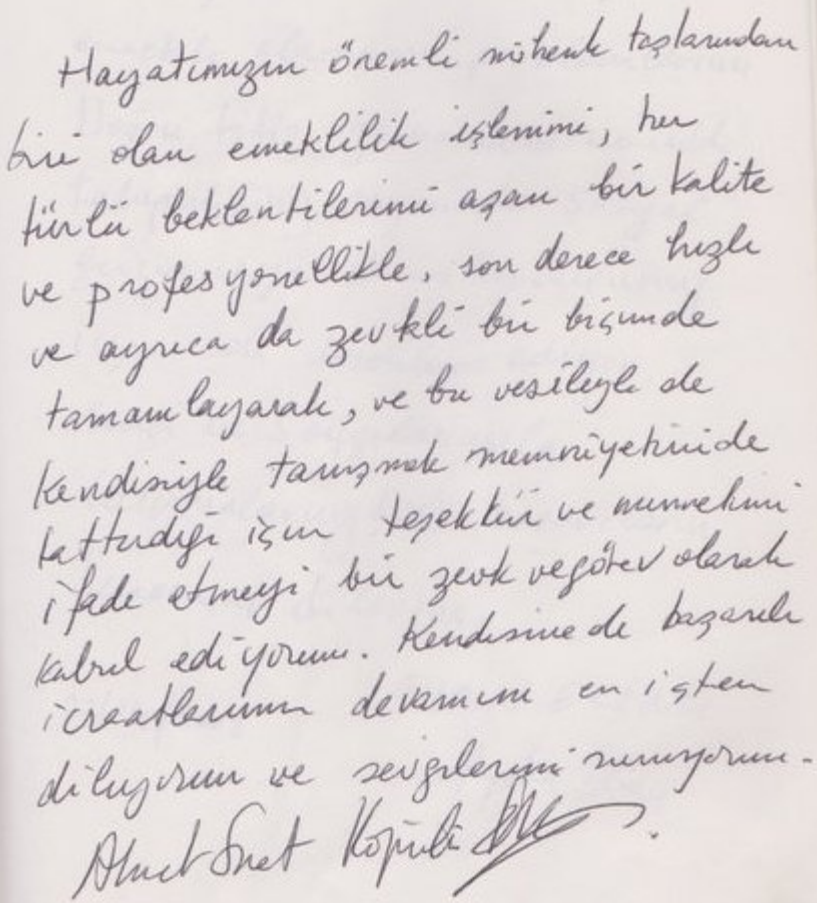 Hayatımızın önemli mihenk taşlarından
biri olan emeklilik işlemimi, her
türlü beklentilerimi aşan bir kalite
ve profesyonellikle, son derece hızlı
ve ayrıca da zevkli bir biçimde
tamamlayarak, ve bu vesileyle de
kendisiyle tanışmak memnuniyetini de
tattırdığı için teşekkür ve minnetimi
ifade etmeyi bir zevk ve görev olarak
kabul ediyorum. Kendisine de başarılı
icraatlarının devamını en içten
diliyorum ve sevgilerimi sunuyorum.
Ahmet